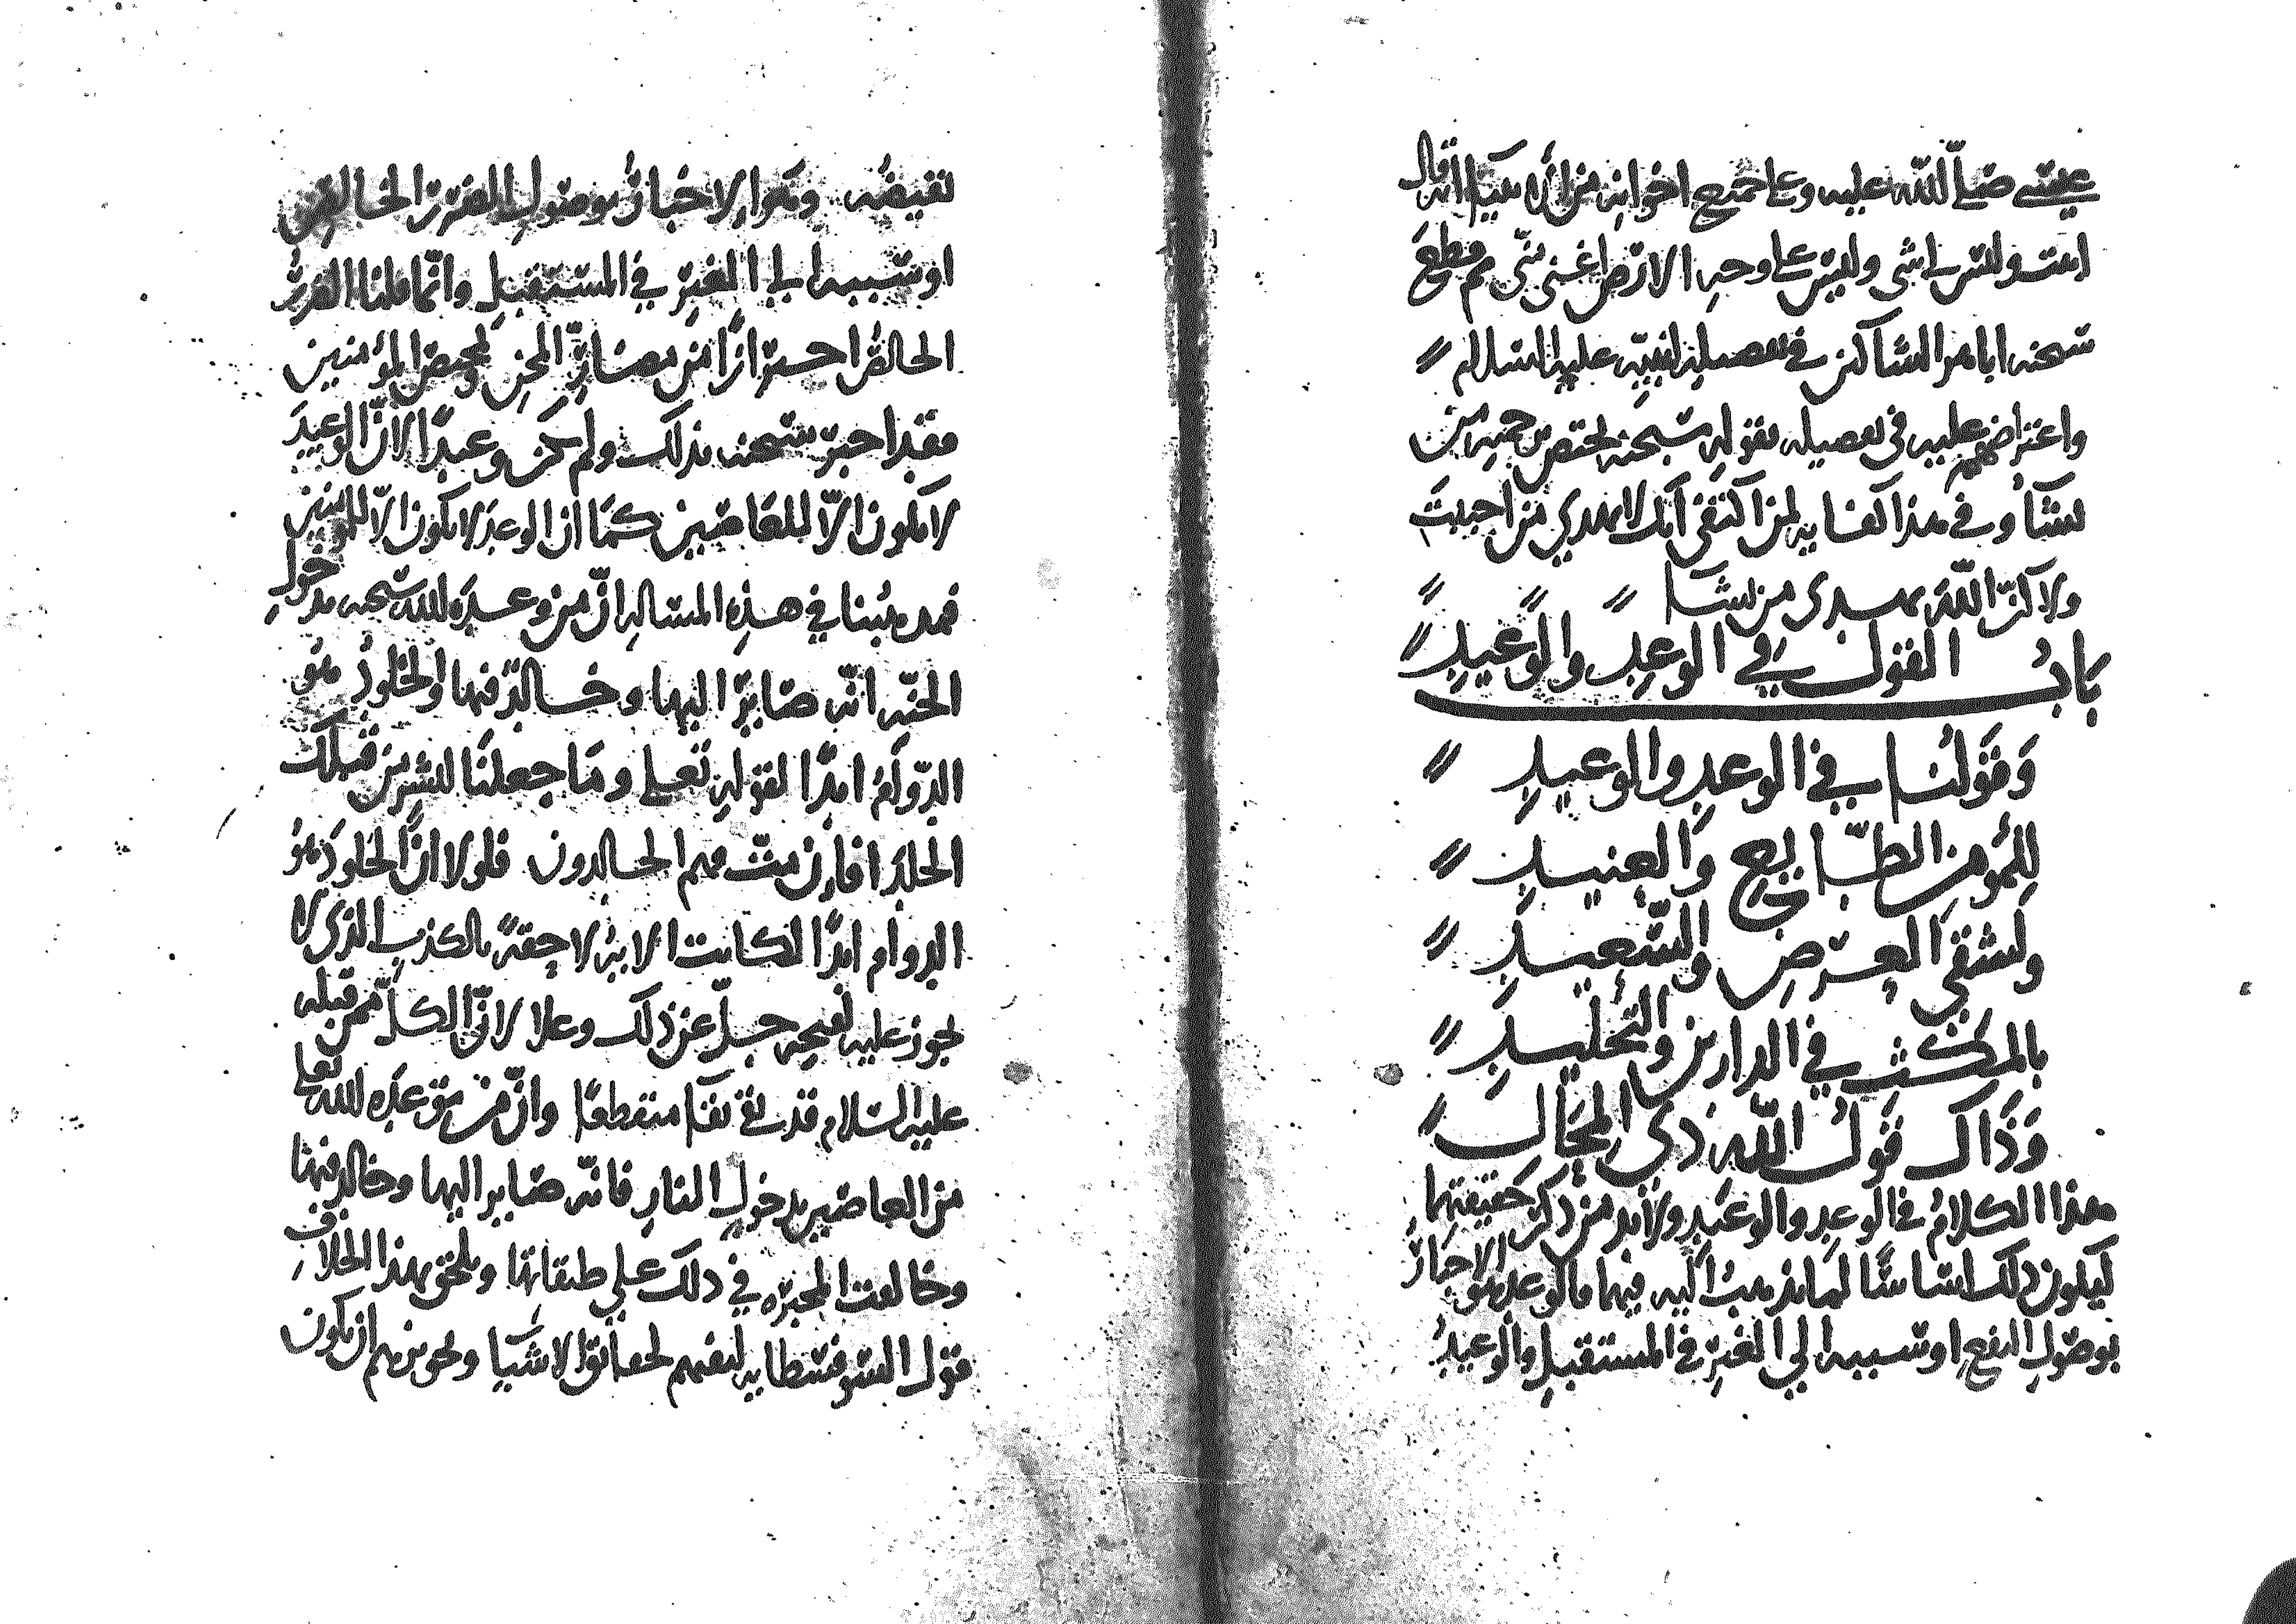 عيسى صلى الله عليه وعلى جميع اخوانه من انه قال
ابيت وليس لي شي وليس على وجه الارض اغنى مني
سبحنه اياهم الشاكرين في تفضيله لنبيه عليه السلام
واعتراضهم عليه في تفضيله بقوله سبحنه يختص برحمته من
يشآ وفي هذا كفايه لمن اكتفى انك لا تهدي من احببت
ولاكنّ الله يهدي من يشآ
بابُ القول في الوعدِ والوعيدِ
وَقَولُنا في الوعدِ والوعيدِ
للمُؤمنِ الطّايعِ وَالعنيدِ
ولشقي العرَض والسّعيدِ
بالمكث في الدارين والتّخليدِ
وَذَاكَ قَولُ الله ذي المِحَالِ
هذا الكلامُ في الوعدِ والوعيدِ ولا بد من ذكر حقيقتهما
ليكون ذلك اساسًا لما نذهب اليه فيهما فالوعد هو الاخبارُ
بوصولِ النفعِ او سببه الى الغيرِ في المستقبلِ والوعيدُ
نقيضُه وهو الاخبارُ بوصولِ الضررِ الخالصِ
او سببه الى الغيرِ في المستقبلِ وانّما قلنا الضررُ
الخالصُ احترازًا من مضارّ المحن وتمحيص المؤمنين
فقد اخبر سبحنه بذلك ولم يكن وعيدًا لانّ الوعيدَ
لا يكون الاّ للعاصين كمَا ان الوعدَ لا يكون الاّ للمؤمنين
فمذهبُنا في هذهِ المسالهِ انّ من وعدَه الله سبحنه بدخولِ
الجنّهِ انّه صايرٌ اليها وخالدٌ فيها والخلودُ هو
الدّوامُ ابدًا لقولهِ تعلى ومَا جعلنَا لبشرٍ من قبلكَ
الخلدَ افاِن متّ فهم الخالدون فلولا انّ الخلودَ هو
الدوام ابدًا لكانت الايهُ لاحِقةً بالكذب الذي لا
يجوز عليه لقبحِه جلّ عن ذلك وعلا لانّ الكلّ ممن قبله
عليه السّلام قد بقي بقآ منقطعًا وانّ من توعدَه الله تعلى
من العاصين بدخولِ النارِ فانّه صاير اليها وخالدٌ فيها
وخالفت المجبره في ذلك على طبقاتها ويلحق بهذا الخلافِ
قول السوفسطايه لنفيهم لحقائق الاشيآ وتجويزهم ان يكون